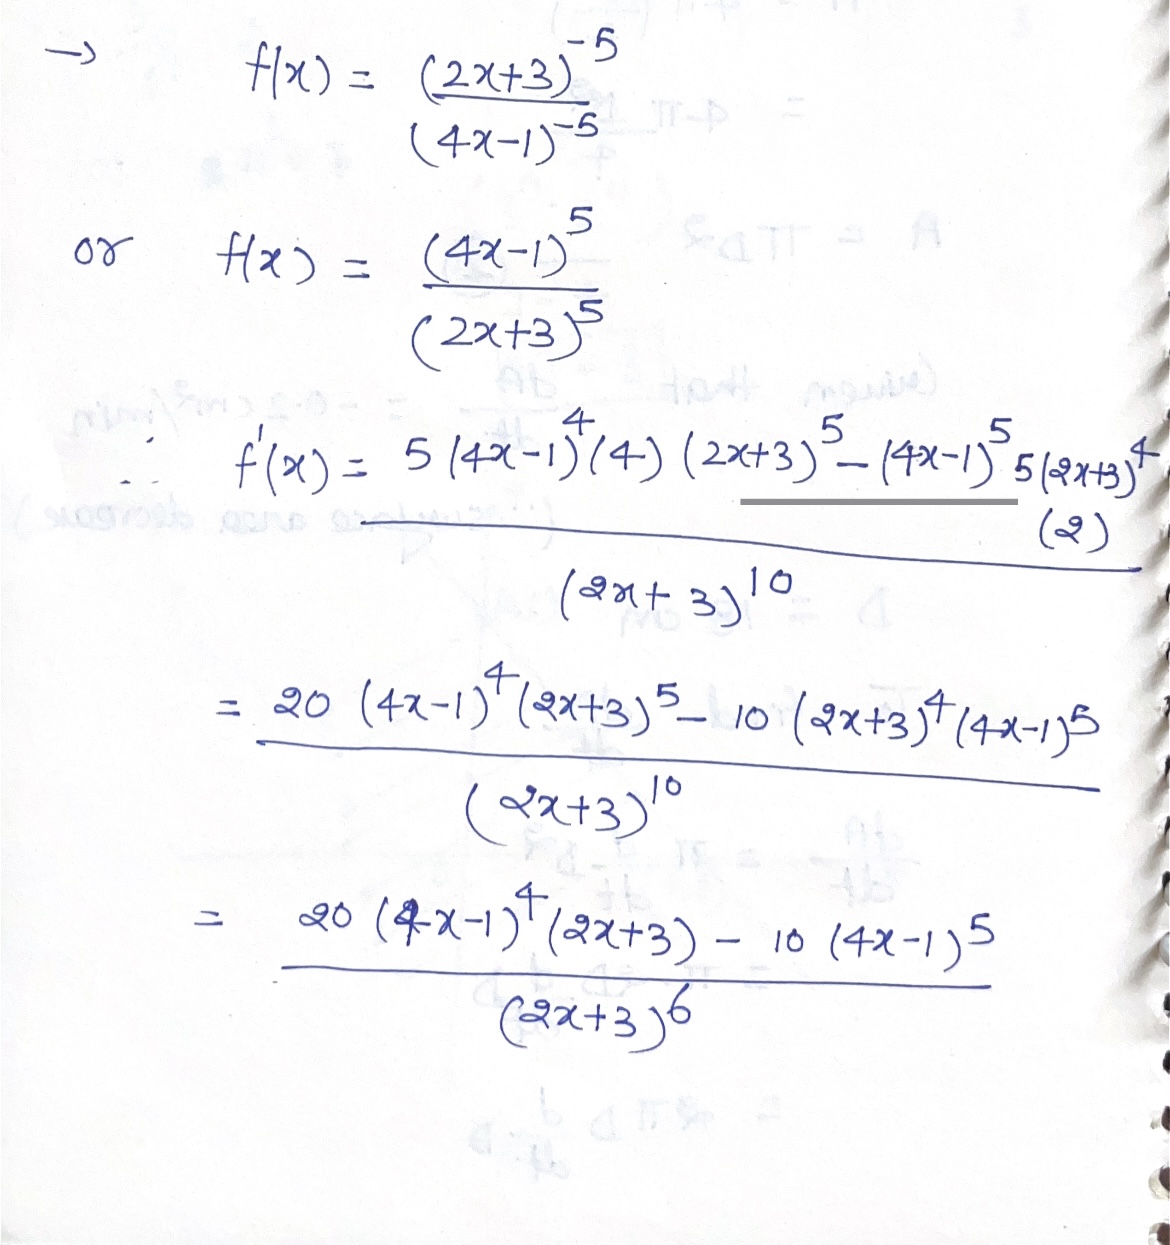 → f(x) = (2x+3)^-5 / (4x-1)^-5
or f(x) = (4x-1)^5 / (2x+3)^5
∴ f'(x) = 5(4x-1)^4(4) (2x+3)^5 - (4x-1)^5 5(2x+3)^4 (2) / (2x+3)^10
= 20 (4x-1)^4 (2x+3)^5 - 10 (2x+3)^4 (4x-1)^5 / (2x+3)^10
= 20 (4x-1)^4 (2x+3) - 10 (4x-1)^5 / (2x+3)^6